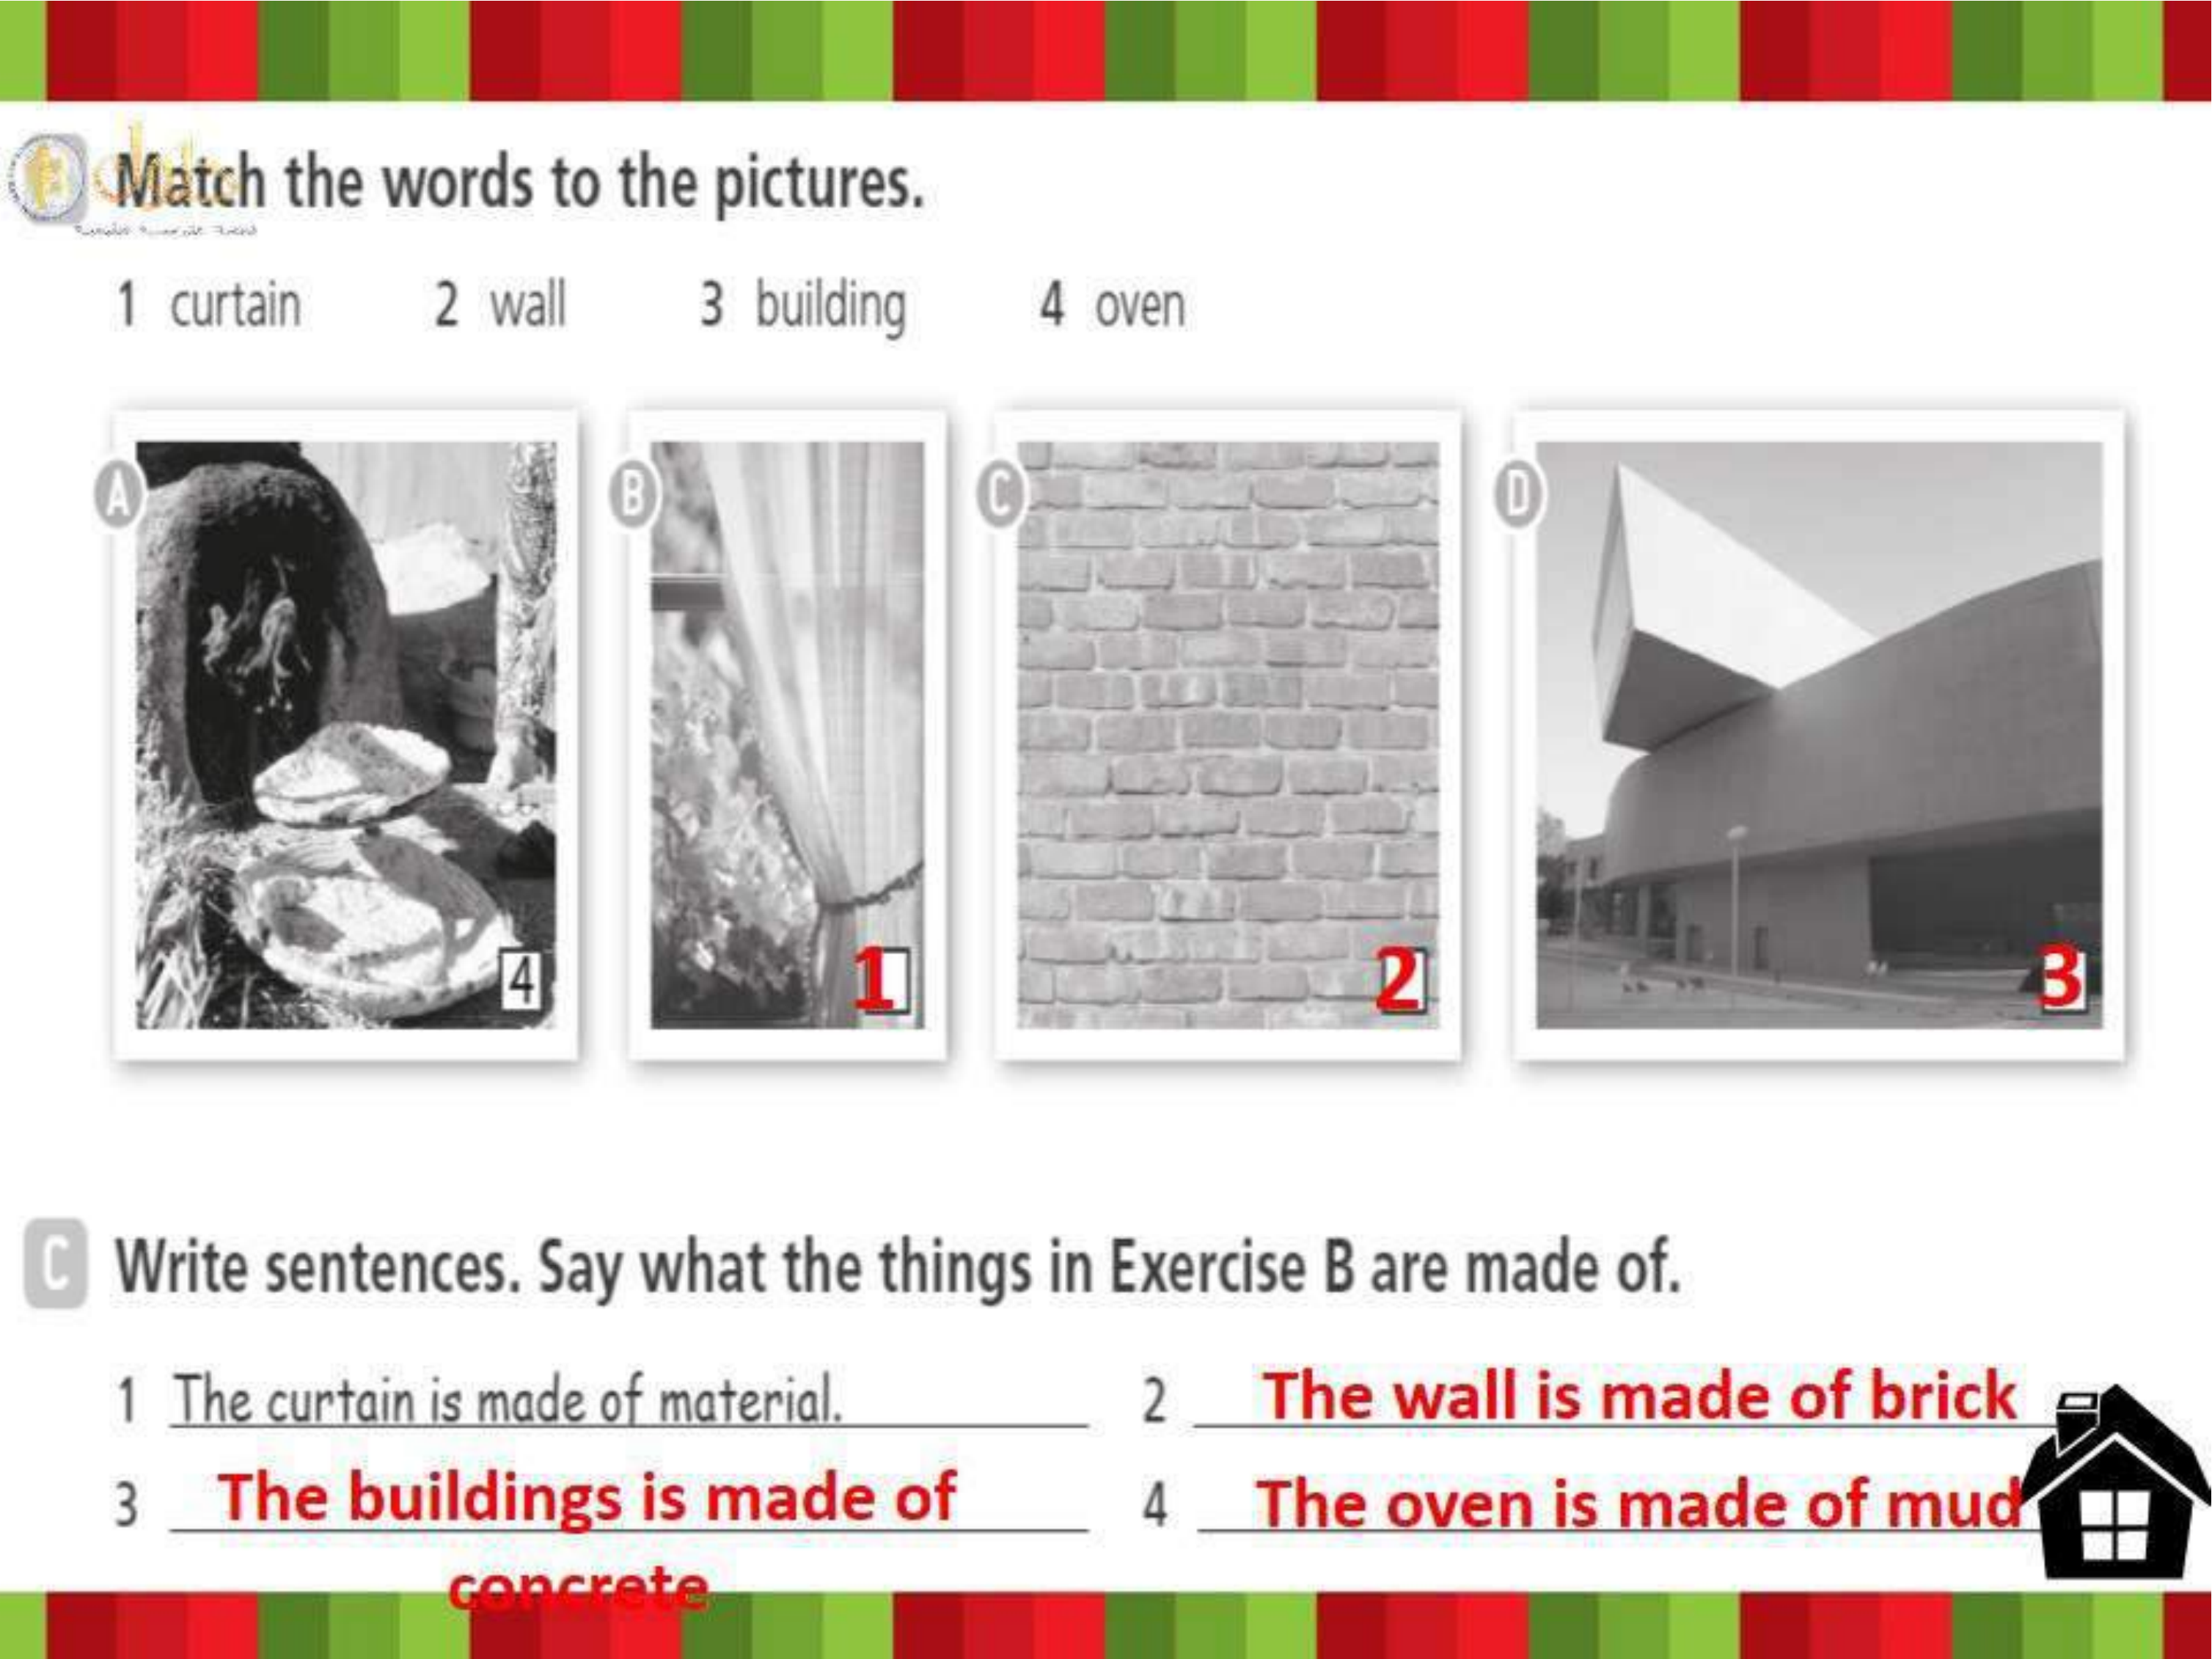 Match the words to the pictures.
1 curtain 2 wall 3 building 4 oven
A B C D
4 1 2 3
C Write sentences. Say what the things in Exercise B are made of.
1 The curtain is made of material. 2 The wall is made of brick
3 The buildings is made of 4 The oven is made of mud
concrete